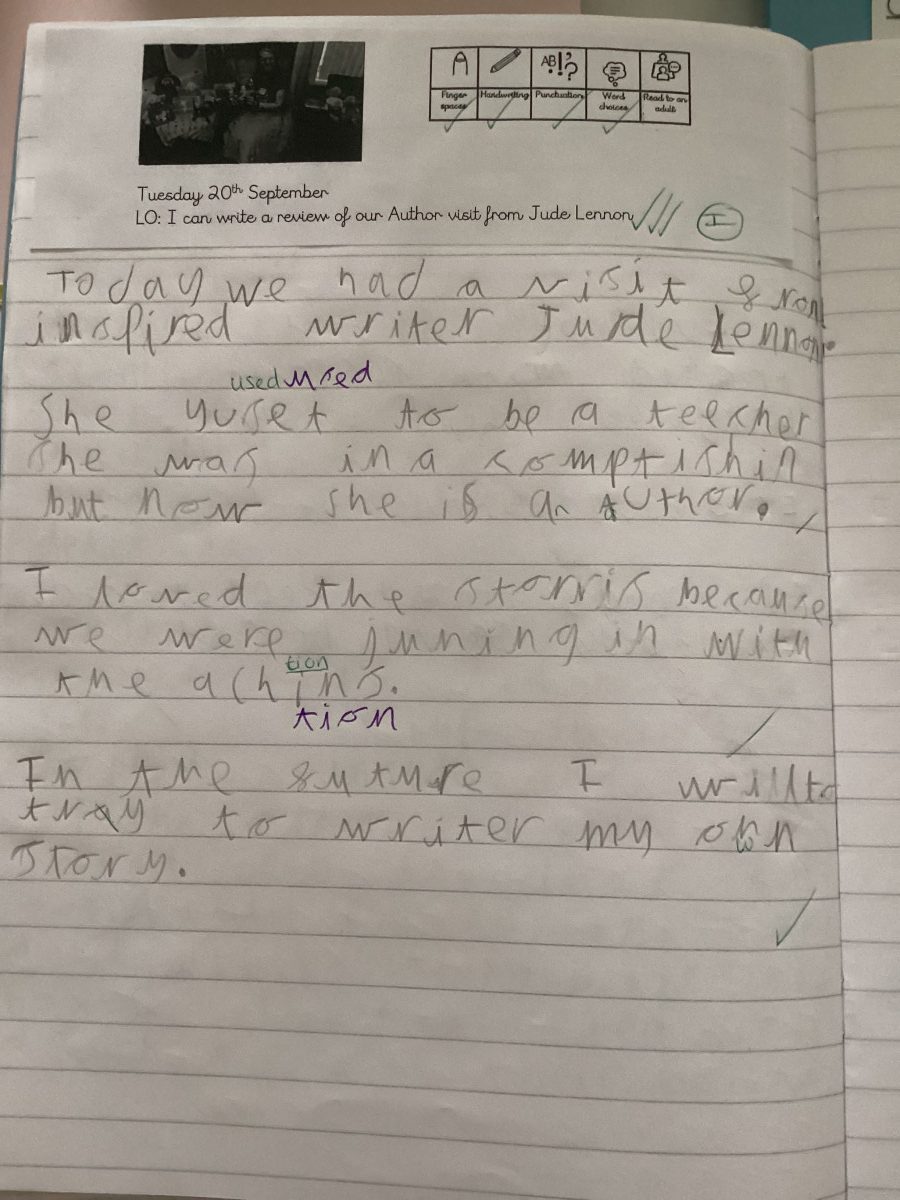 A AB!?
Finger spaces Handwriting Punctuation Word choices Read to an adult
Tuesday 20th September
LO: I can write a review of our Author visit from Jude Lennon I
Today we had a visit from
inspired writer Jude Lennon.
used used
She yuset to be a teecher
She was in a comptishin
but now she is an Author.
I loved the storris because
we were juning in with
tion
the achins.
tion
In the future I will to
tray to writer my own
Story.